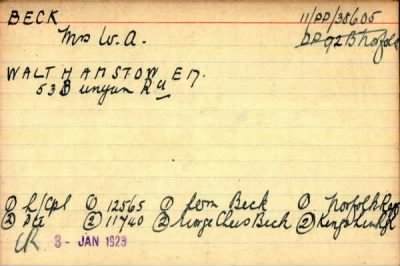 BECK 11/DP/38605
Mrs W.A. DP 92B Norfolk
WALTHAMSTOW E17.
53 Bunyan Rd
① L/Cpl ① 12565 ① Leon Beck ① Norfolk Reg
② Pte ② 11740 ② George Chas Beck ② Kings Liv Rgt
3- JAN 1929